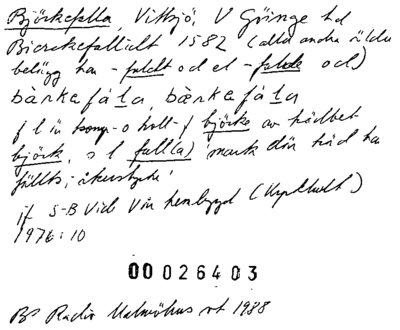 Björkefalla, Vittsjö, V Göinge hd
Bierckefallidt 1582 (alla andra äldre
belägg har -faldt och el -falde och)
bàrkafála, bàrkafála
f l är komp- o koll-f björke av trädbet
björk, s l fall(a) 'mark där träd ha
fällts; åkerstycke'
jf S-B Vide Vin henbygd
1976:10
00026403
BS Radio Malmöhus vt 1988